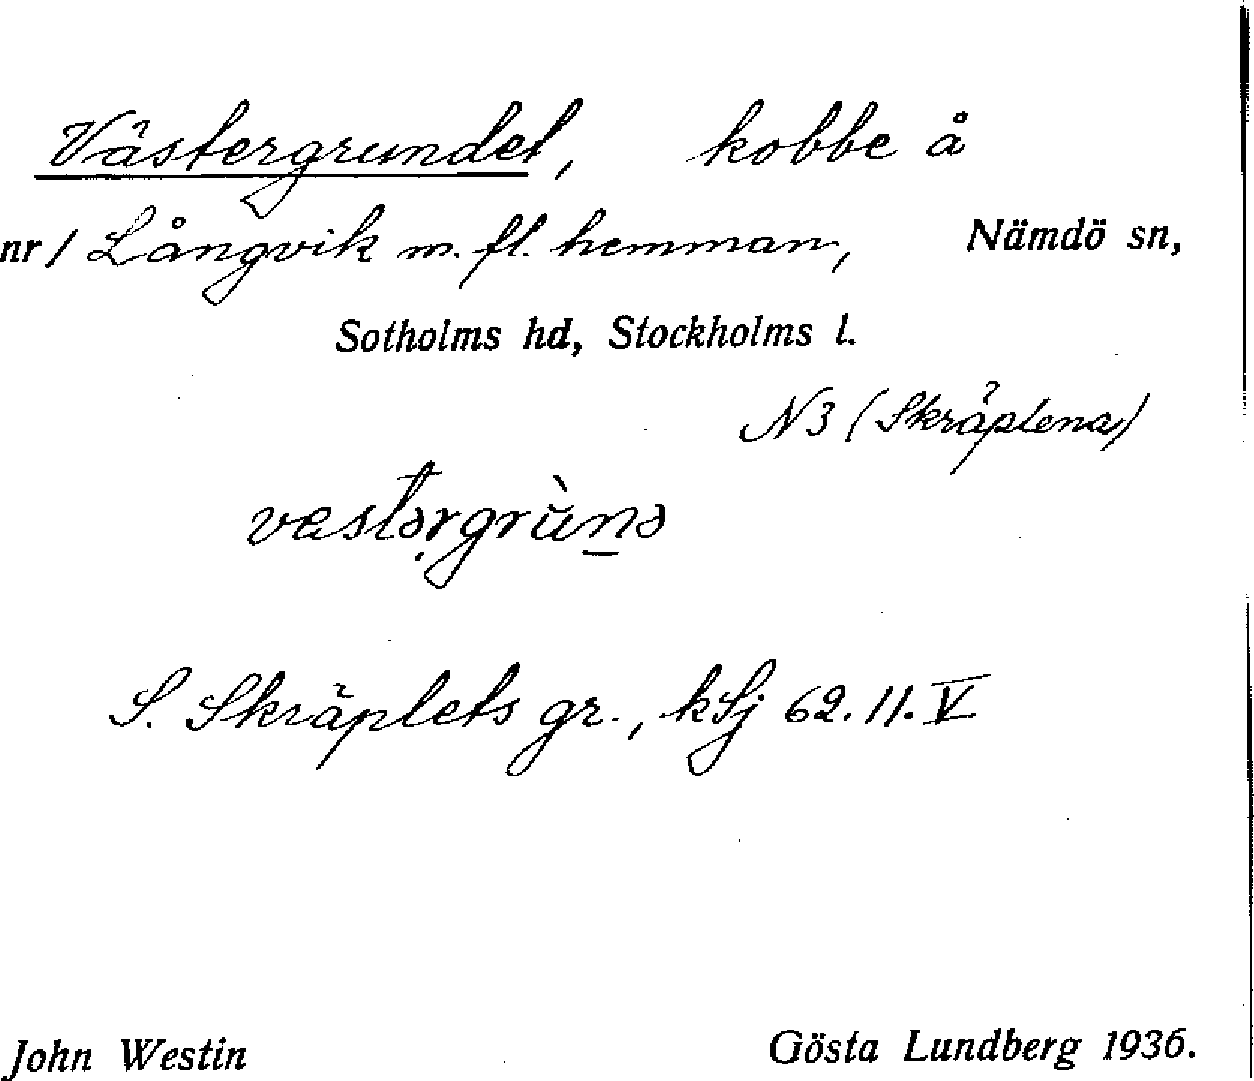 Västergrundet, kobbe å
nr 1 Långvik m. fl. hemman, Nämdö sn,
Sotholms hd, Stockholms l.
N3 (Skräplena)
vestərgrùnə
S. Skräplets gr., kSj 62.11.V
John Westin Gösta Lundberg 1936.